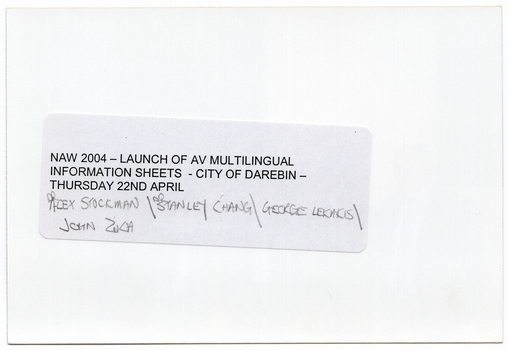 NAW 2004 – LAUNCH OF AV MULTILINGUAL
INFORMATION SHEETS - CITY OF DAREBIN –
THURSDAY 22ND APRIL
ALEX STOCKMAN \ STANLEY CHANG \ GEORGE LEKAKIS \
JOHN ZIKA